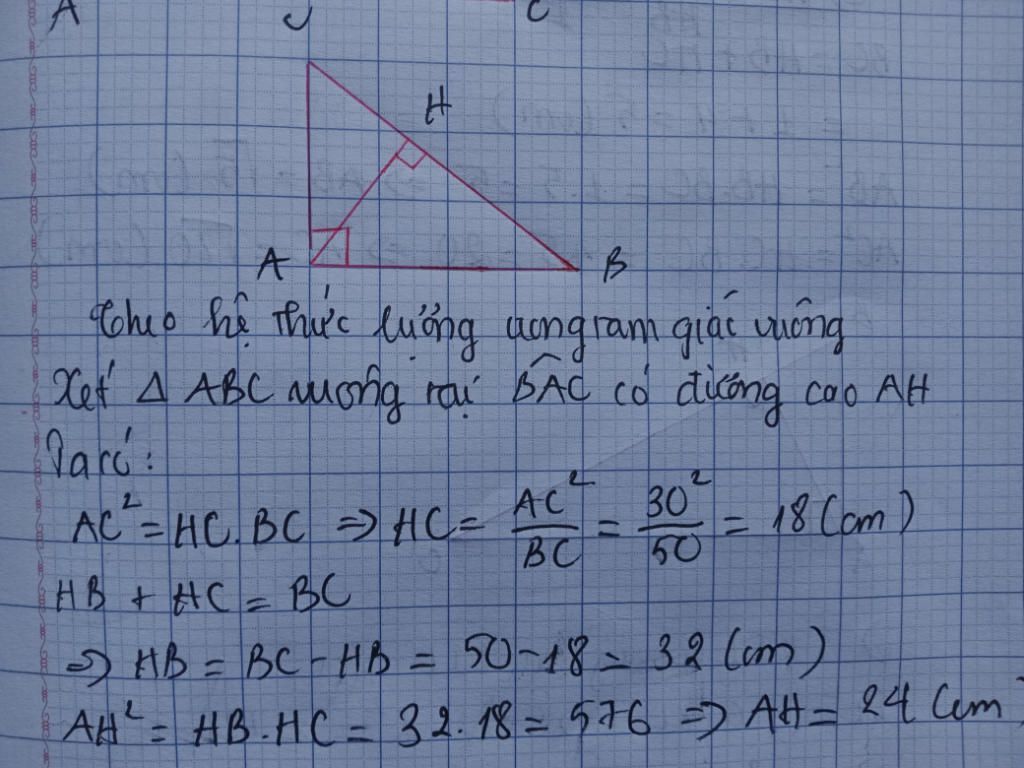 A C
H
A B
Theo hệ thức lượng trong tam giác vuông
Xét Δ ABC vuông tại BÂC có đường cao AH
Ta có:
AC² = HC.BC ⇒ HC = AC²/BC = 30²/50 = 18 (cm)
HB + HC = BC
⇒ HB = BC - HB = 50 - 18 = 32 (cm)
AH² = HB.HC = 32.18 = 576 ⇒ AH = 24 (cm)